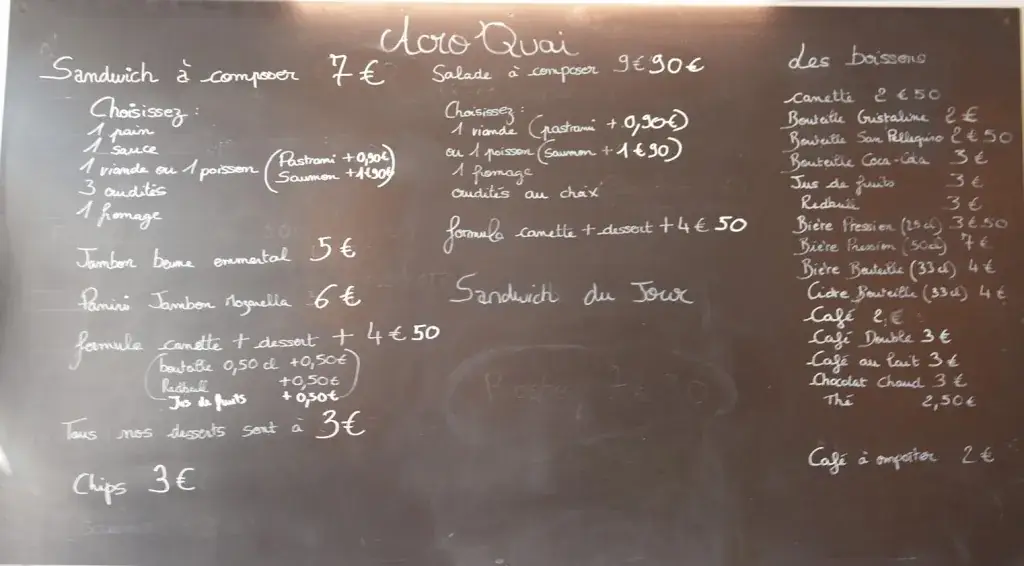 Acro'Quai
Sandwich à composer 7€
Choisissez :
1 pain
1 sauce
1 viande ou 1 poisson (Pastrami +0,90€)
(Saumon +1€90)
3 crudités
1 fromage
Jambon beurre emmental 5€
Panini Jambon Mozarella 6€
formule canette + dessert + 4€50
bouteille 0,50 cl +0,50€
Redbull +0,50€
Jus de fruits +0,50€
Tous nos desserts sont à 3€
Chips 3€
Salade à composer 9€90€
Choisissez :
1 viande (pastrami +0,90€)
ou 1 poisson (saumon +1€90)
1 fromage
crudités au choix
formule canette + dessert + 4€50
Sandwich du Jour
Les boissons
canette 2€50
Bouteille Cristaline 2€
Bouteille San Pellegrino 2€50
Bouteille Coca-Cola 3€
Jus de fruits 3€
Redbull 3€
Bière Pression (25cl) 3€50
Bière Pression (50cl) 7€
Bière Bouteille (33cl) 4€
Cidre Bouteille (33cl) 4€
Café 2€
Café Double 3€
Café au lait 3€
Chocolat chaud 3€
Thé 2,50€
Café à emporter 2€